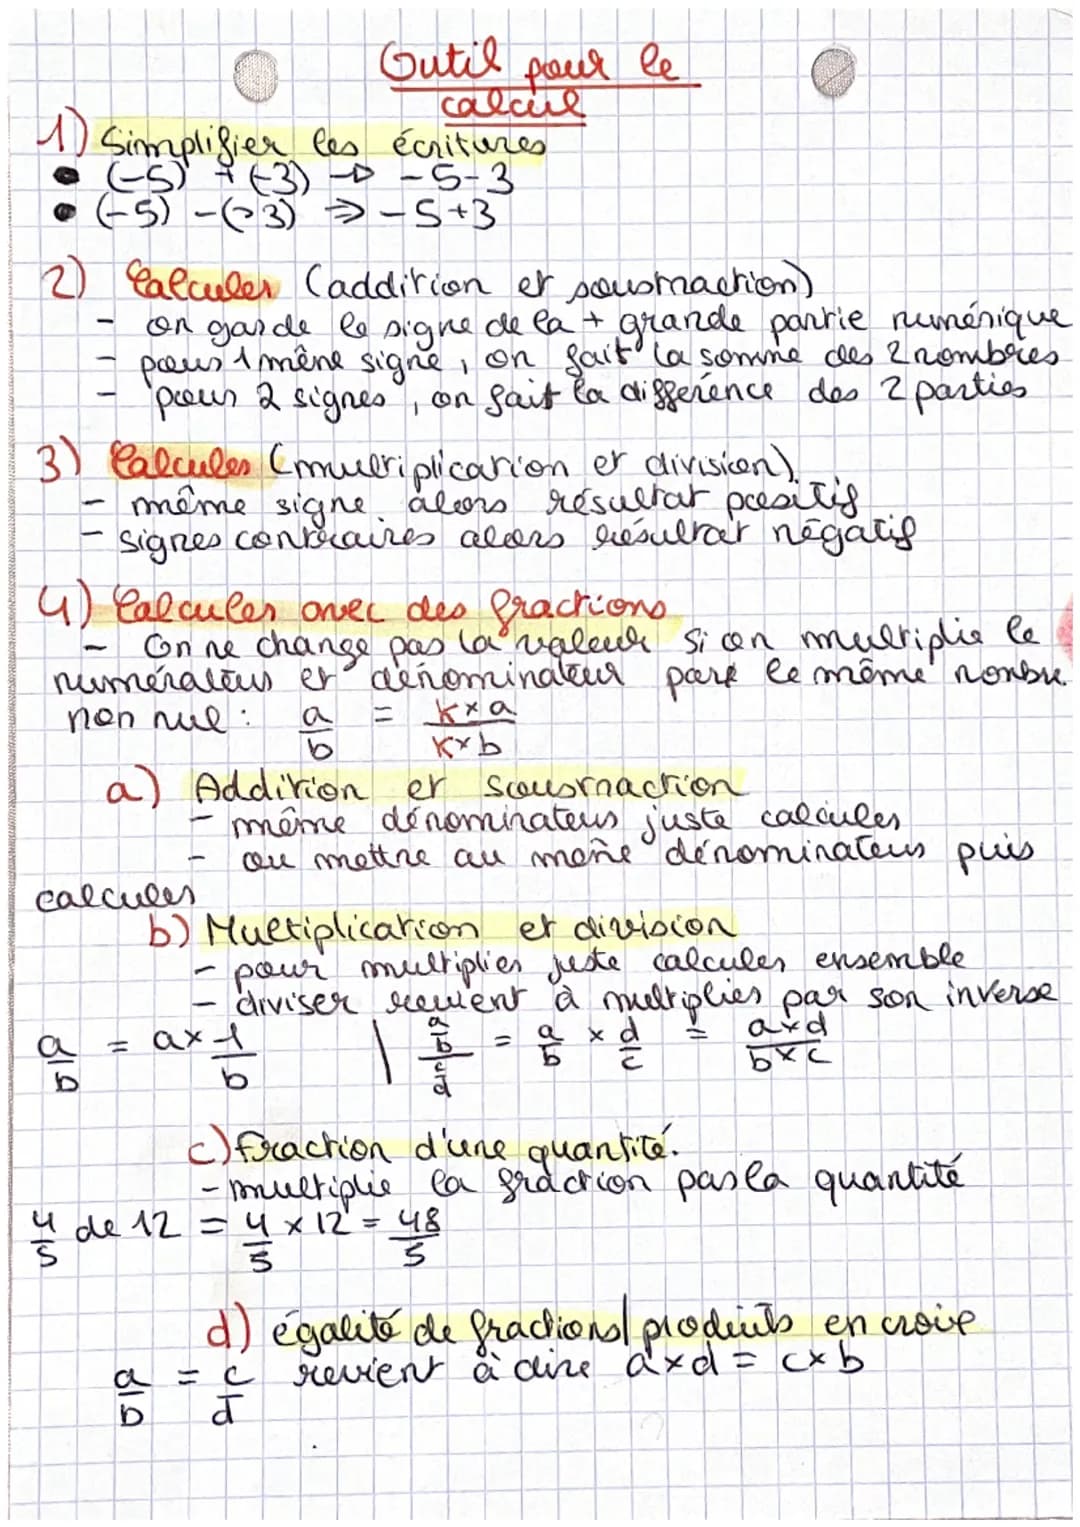 Outil pour le
calcul
1) Simplifier les écritures
• (-5) + (-3) → -5-3
• (-5) -(-3) ⇒ -5+3
2) Calculer (addition et soustraction)
- on garde le signe de la + grande partie numérique
- pour 1 même signe, on fait la somme des 2 nombres
- pour 2 signes, on fait la différence des 2 parties
3) Calculer (multiplication et division)
- même signe alors résultat positif
- signes contraires alors résultat négatif
4) Calculer avec des fractions
- On ne change pas la valeur si on multiplie le
numérateur et dénominateur par le même nombre
non nul : a/b = k×a/k×b
a) Addition et soustraction
- même dénominateur juste calculer
- ou mettre au même dénominateur puis
calculer
b) Multiplication et division
- pour multiplier juste calculer ensemble
- diviser revient à multiplier par son inverse
a/b = a×1/b | a/b / c/d = a/b × d/c = a×d/b×c
c) fraction d'une quantité.
- multiplie la fraction par la quantité
4/5 de 12 = 4/5 × 12 = 48/5
d) égalité de fractions/produits en croix
a/b = c/d revient à dire a×d = c×b